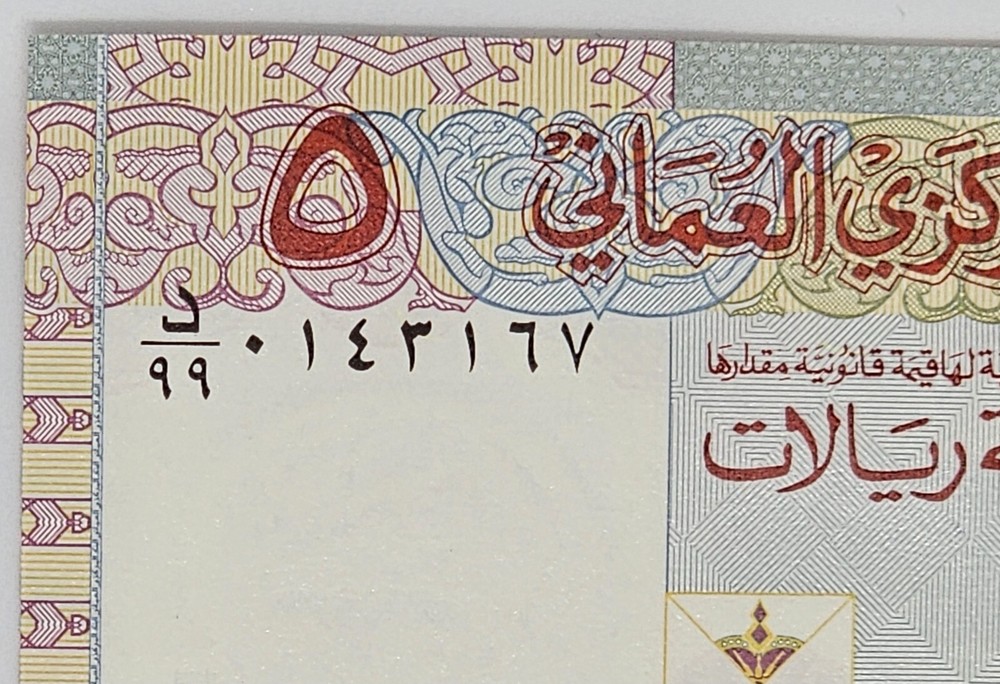 ٥
ركَزي العُمَاني
د
٩٩
٠١٤٣١٦٧
لهَا قيمة قانونيَّة مِقدارها
ريَالات